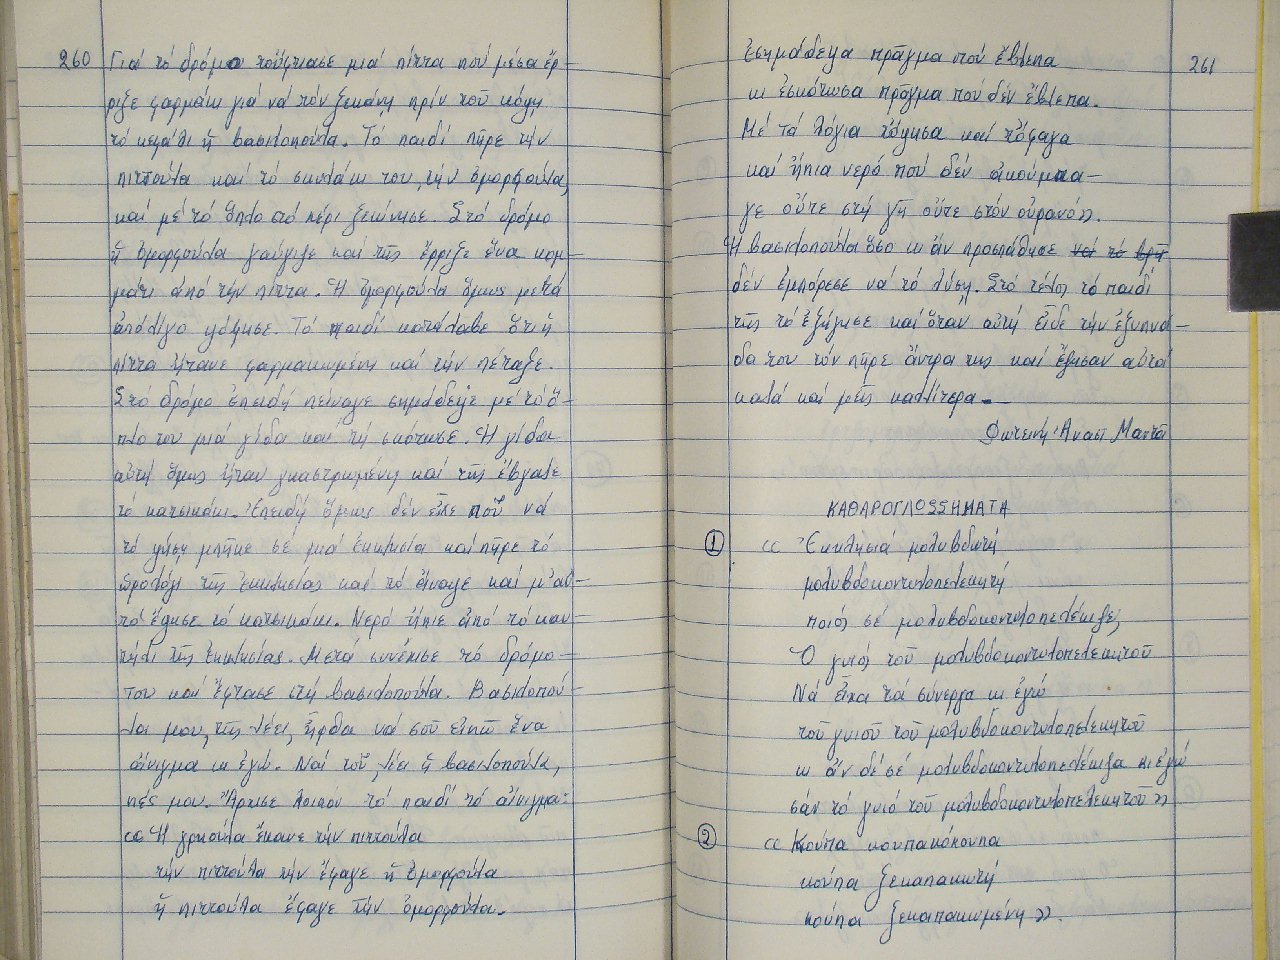 260
Γιά τό δρόμο τοὔφτιασε μιά πίττα πού μέσα ἔρ-
ριξε φαρμάκι γιά νά τόν ξεκάνη πρίν τοῦ κόψη
τό κεφάλι ἡ βασιλοπούλα. Τό παιδί πῆρε τήν
πιττούλα καί τό σκυλάκι του, τήν ὀμορφούλα,
καί μέ τό ὅπλο στό χέρι ξεκίνησε. Στό δρόμο
ἡ ὀμορφούλα γαύγιζε καί τῆς ἔρριξε ἕνα κομ-
μάτι ἀπό τήν πίττα. Ἡ ὀμορφούλα ὅμως μετά
ἀπό λίγο ψόφησε. Τό παιδί κατάλαβε ὅτι ἡ
πίττα ἤτανε φαρμακωμένη καί τήν πέταξε.
Στό δρόμο ἐπειδή πείναγε σημάδεψε μέ τό ὅ-
πλο του μιά γίδα καί τή σκότωσε. Ἡ γίδα
αὐτή ὅμως ἦταν γκαστρωμένη καί τῆς ἔβγαλε
τό κατσικάκι. Ἐπειδή ὅμως δέν εἶχε ποῦ νά
τό ψήση μπῆκε σέ μιά ἐκκλησία καί πῆρε τό
ὡρολόγι τῆς ἐκκλησίας καί τό ἄναψε καί μ' αὐ-
τό ἔψησε τό κατσικάκι. Νερό ἤπιε ἀπό τό καν-
τήλι τῆς ἐκκλησίας. Μετά συνέχισε τό δρόμο
του καί ἔφτασε στή βασιλοπούλα. Βασιλοπού-
λα μου, τῆς λέει, ἦρθα νά σοῦ εἰπῶ ἕνα
αἴνιγμα κι ἐγώ. Ναί τοῦ λέει ἡ βασιλοπούλα,
πές μου. Ἄρχισε λοιπόν τό παιδί τό αἴνιγμα:
«Ἡ γρηούλα ἔκανε τήν πιττούλα
τήν πιττούλα τήν ἔφαγε ἡ ὀμορφούλα
ἡ πιττούλα ἔφαγε τήν ὀμορφούλα.
261
Ἐσημάδεψα πρᾶγμα πού ἔβλεπα
κι ἐσκότωσα πρᾶγμα πού δέν ἔβλεπα.
Μέ τά λόγια τὄψησα καί τὄφαγα
καί ἤπια νερό πού δέν ἀκούμπα-
γε οὔτε στή γῆ οὔτε στόν οὐρανό».
Ἡ βασιλοπούλα ὅσο κι ἄν προσπάθησε νά τό βρῆ
δέν ἐμπόρεσε νά τό λύση. Στό τέλος τό παιδί
τῆς τό ἐξήγησε καί ὅταν αὐτή εἶδε τήν ἐξυπνά-
δα του τόν πῆρε ἄντρα της καί ἔζησαν αὐτοί
καλά καί μεῖς καλλίτερα.
Φωτεινή Ἀνασ. Μαντά
ΚΑΘΑΡΟΓΛΩΣΣΗΜΑΤΑ
1 « Ἐκκλησιά μολυβδωτή
μολυβδοκοντυλοπελεκητή
ποιός σέ μολυβδοκοντυλοπελέκησε;
Ὁ γυιός τοῦ μολυβδοκοντυλοπελεκητοῦ
Νά εἶχα τά σύνεργα κι ἐγώ
τοῦ γυιοῦ τοῦ μολυβδοκοντυλοπελεκητοῦ
κι ἄν δέ σέ μολυβδοκοντυλοπελέκησα κι ἐγώ
σάν τό γυιό τοῦ μολυβδοκοντυλοπελεκητοῦ »
2 « Κούπα κουπακόκουπα
κούπα ξεκαπακωτή
κούπα ξεκαπακωμένη ».